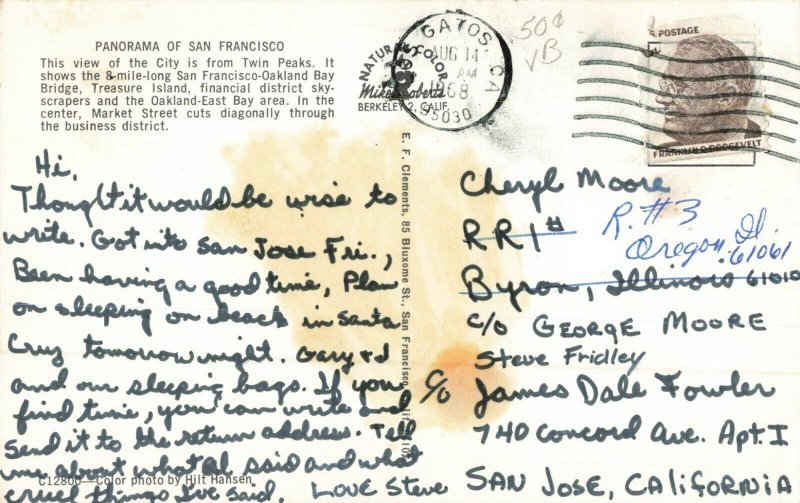 PANORAMA OF SAN FRANCISCO
This view of the City is from Twin Peaks. It
shows the 8-mile-long San Francisco-Oakland Bay
Bridge, Treasure Island, financial district sky-
scrapers and the Oakland-East Bay area. In the
center, Market Street cuts diagonally through
the business district.
NATURAL COLOR
Mike Roberts
BERKELEY 2, CALIF.
GATOS, CA
AUG 14
AM
1968
95030
50¢
VB
POSTAGE
FRANKLIN D. ROOSEVELT
Hi,
Thought it would be wise to
write. Got into San Jose Fri.,
Been having a good time, Plan
on sleeping on beach in Santa
Cruz tomorrow night. Gary & I
and our sleeping bags. If you
find time, you can write and
send it to the return address. Tell
me about what Al said and what
cruel things I've said. LOVE Steve
C12800—Color photo by Hilt Hansen
E. F. Clements, 85 Bluxome St., San Francisco, Calif.
Cheryl Moore
RR1#
R.#3
Oregon, Il.
61061
Byron, Illinois 61010
c/o GEORGE MOORE
Steve Fridley
c/o James Dale Fowler
740 Concord Ave. Apt. I
SAN JOSE, CALIFORNIA